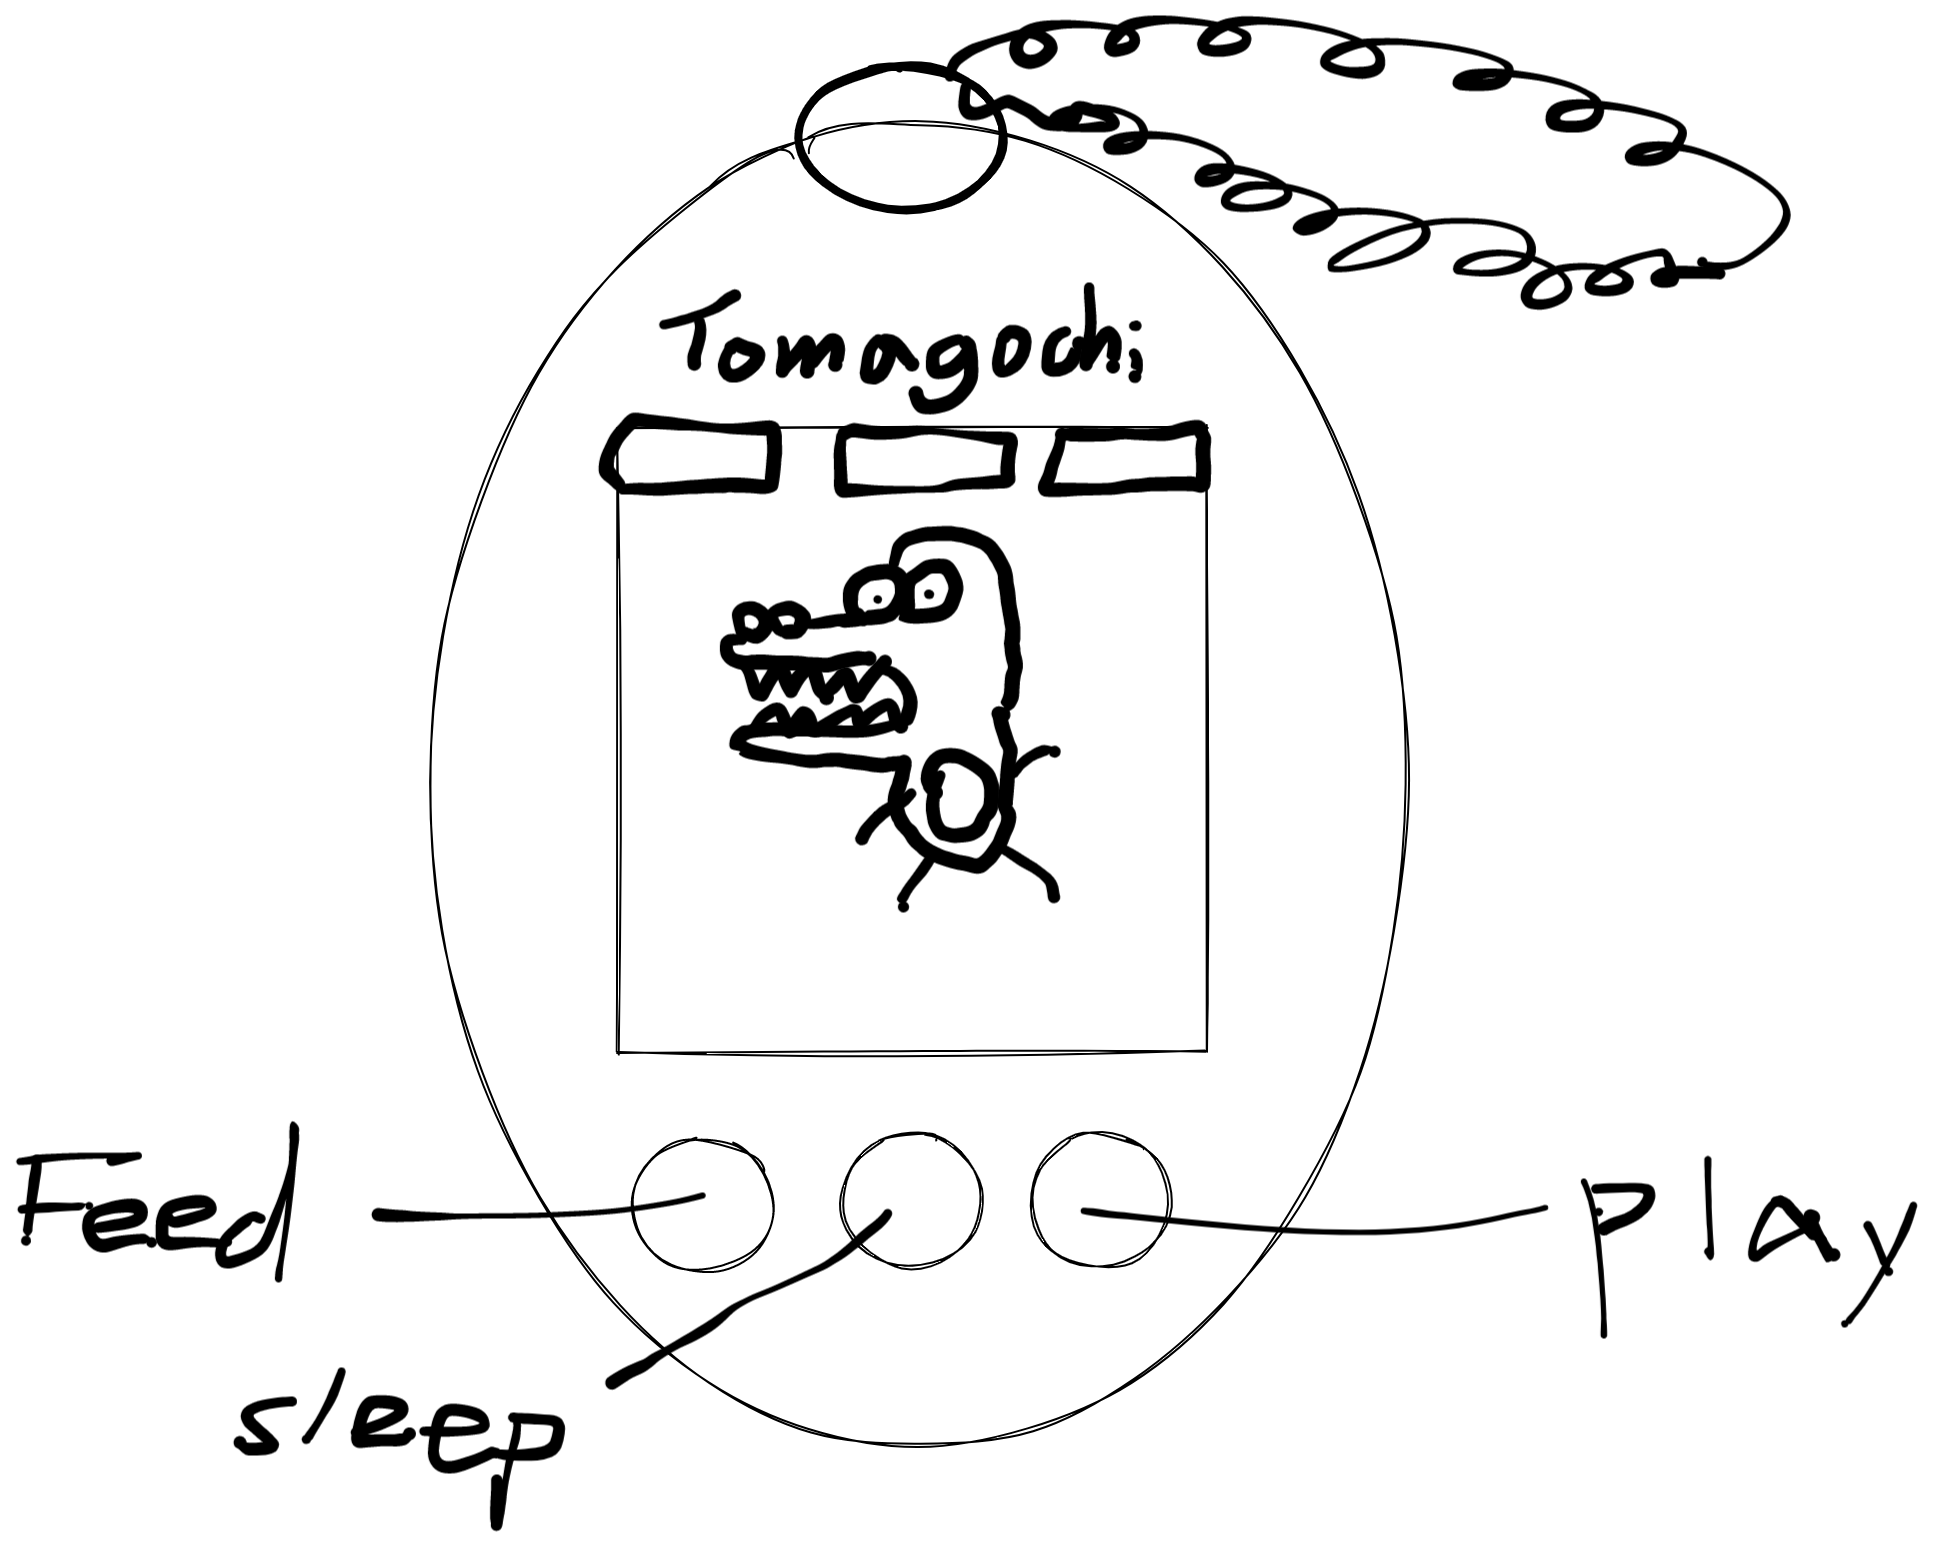 Tomagochi
Feed
sleep
Play